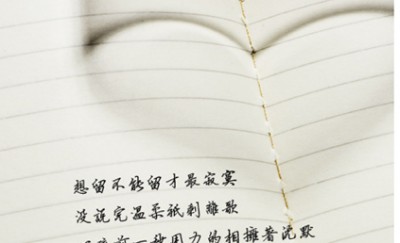 想留不能留才最寂寞
没说完温柔祇剩离歌
一秒用力的相拥着沉默